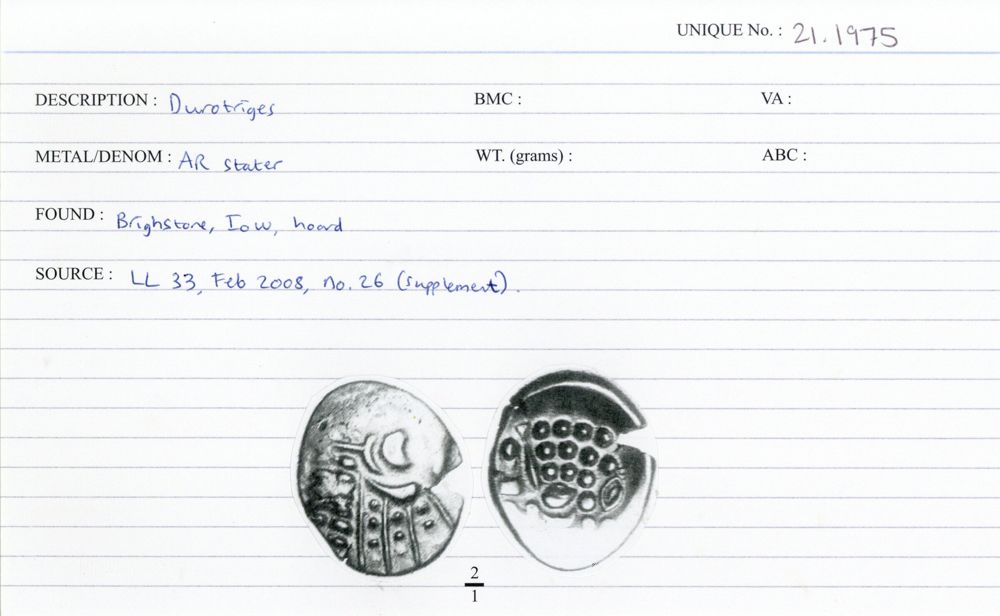 UNIQUE No. : 21.1975
DESCRIPTION : Durotriges BMC : VA :
METAL/DENOM : AR stater WT. (grams) : ABC :
FOUND : Brighstone, IoW, hoard
SOURCE : LL 33, Feb 2008, no. 26 (supplement).
2
1